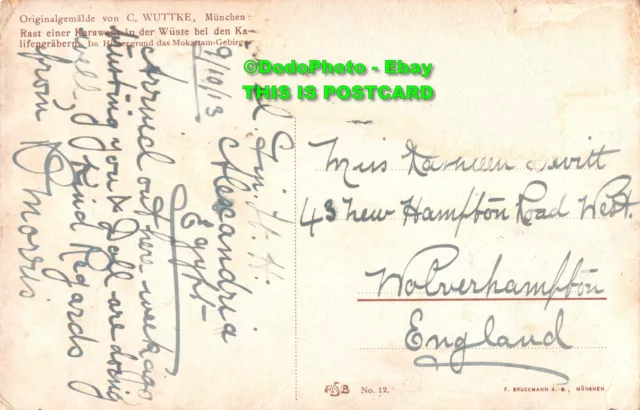 Originalgemälde von C. WUTTKE, München
Rast einer Karawane in der Wüste bei den Ka-
lifengräbern. Im Hintergrund das Mokattam-Gebirge
©DodoPhoto - Ebay
THIS IS POSTCARD
Alexandria
Egypt
9/10/13
Arrived out here week ago
trusting you & Doll are doing
well, Kind Regards
from Morris
Miss
43 New Hampton Road West.
Wolverhampton
England
No. 12.
F. BRUCKMANN A.-G., MÜNCHEN.